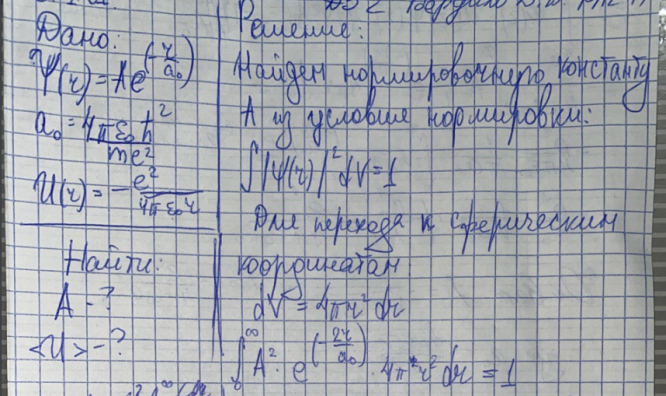 Дано:
ψ(r) = A e^(-r/a₀)
a₀ = 4πε₀ħ²/me²
U(r) = -e²/4πε₀r
Найти:
A - ?
<U> - ?
Решение:
Найдем нормировочную константу
A из условия нормировки:
∫|ψ(r)|² dV = 1
Для перехода к сферическим
координатам:
dV = 4πr² dr
∫₀^∞ A² · e^(-2r/a₀) · 4π r² dr = 1